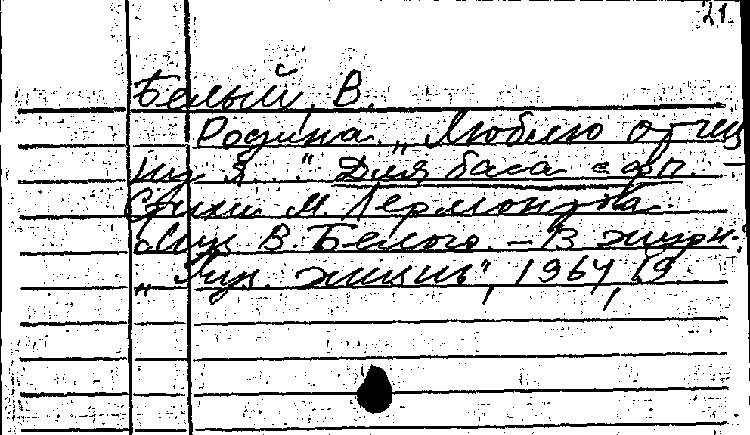 21.
Белый, В.
Родина. „Люблю отчиз
ну я..." Для баса с фп. –
Стихи М. Лермонтова.
Муз. В. Белого. – В журн.:
„Муз. жизнь", 1964, 19